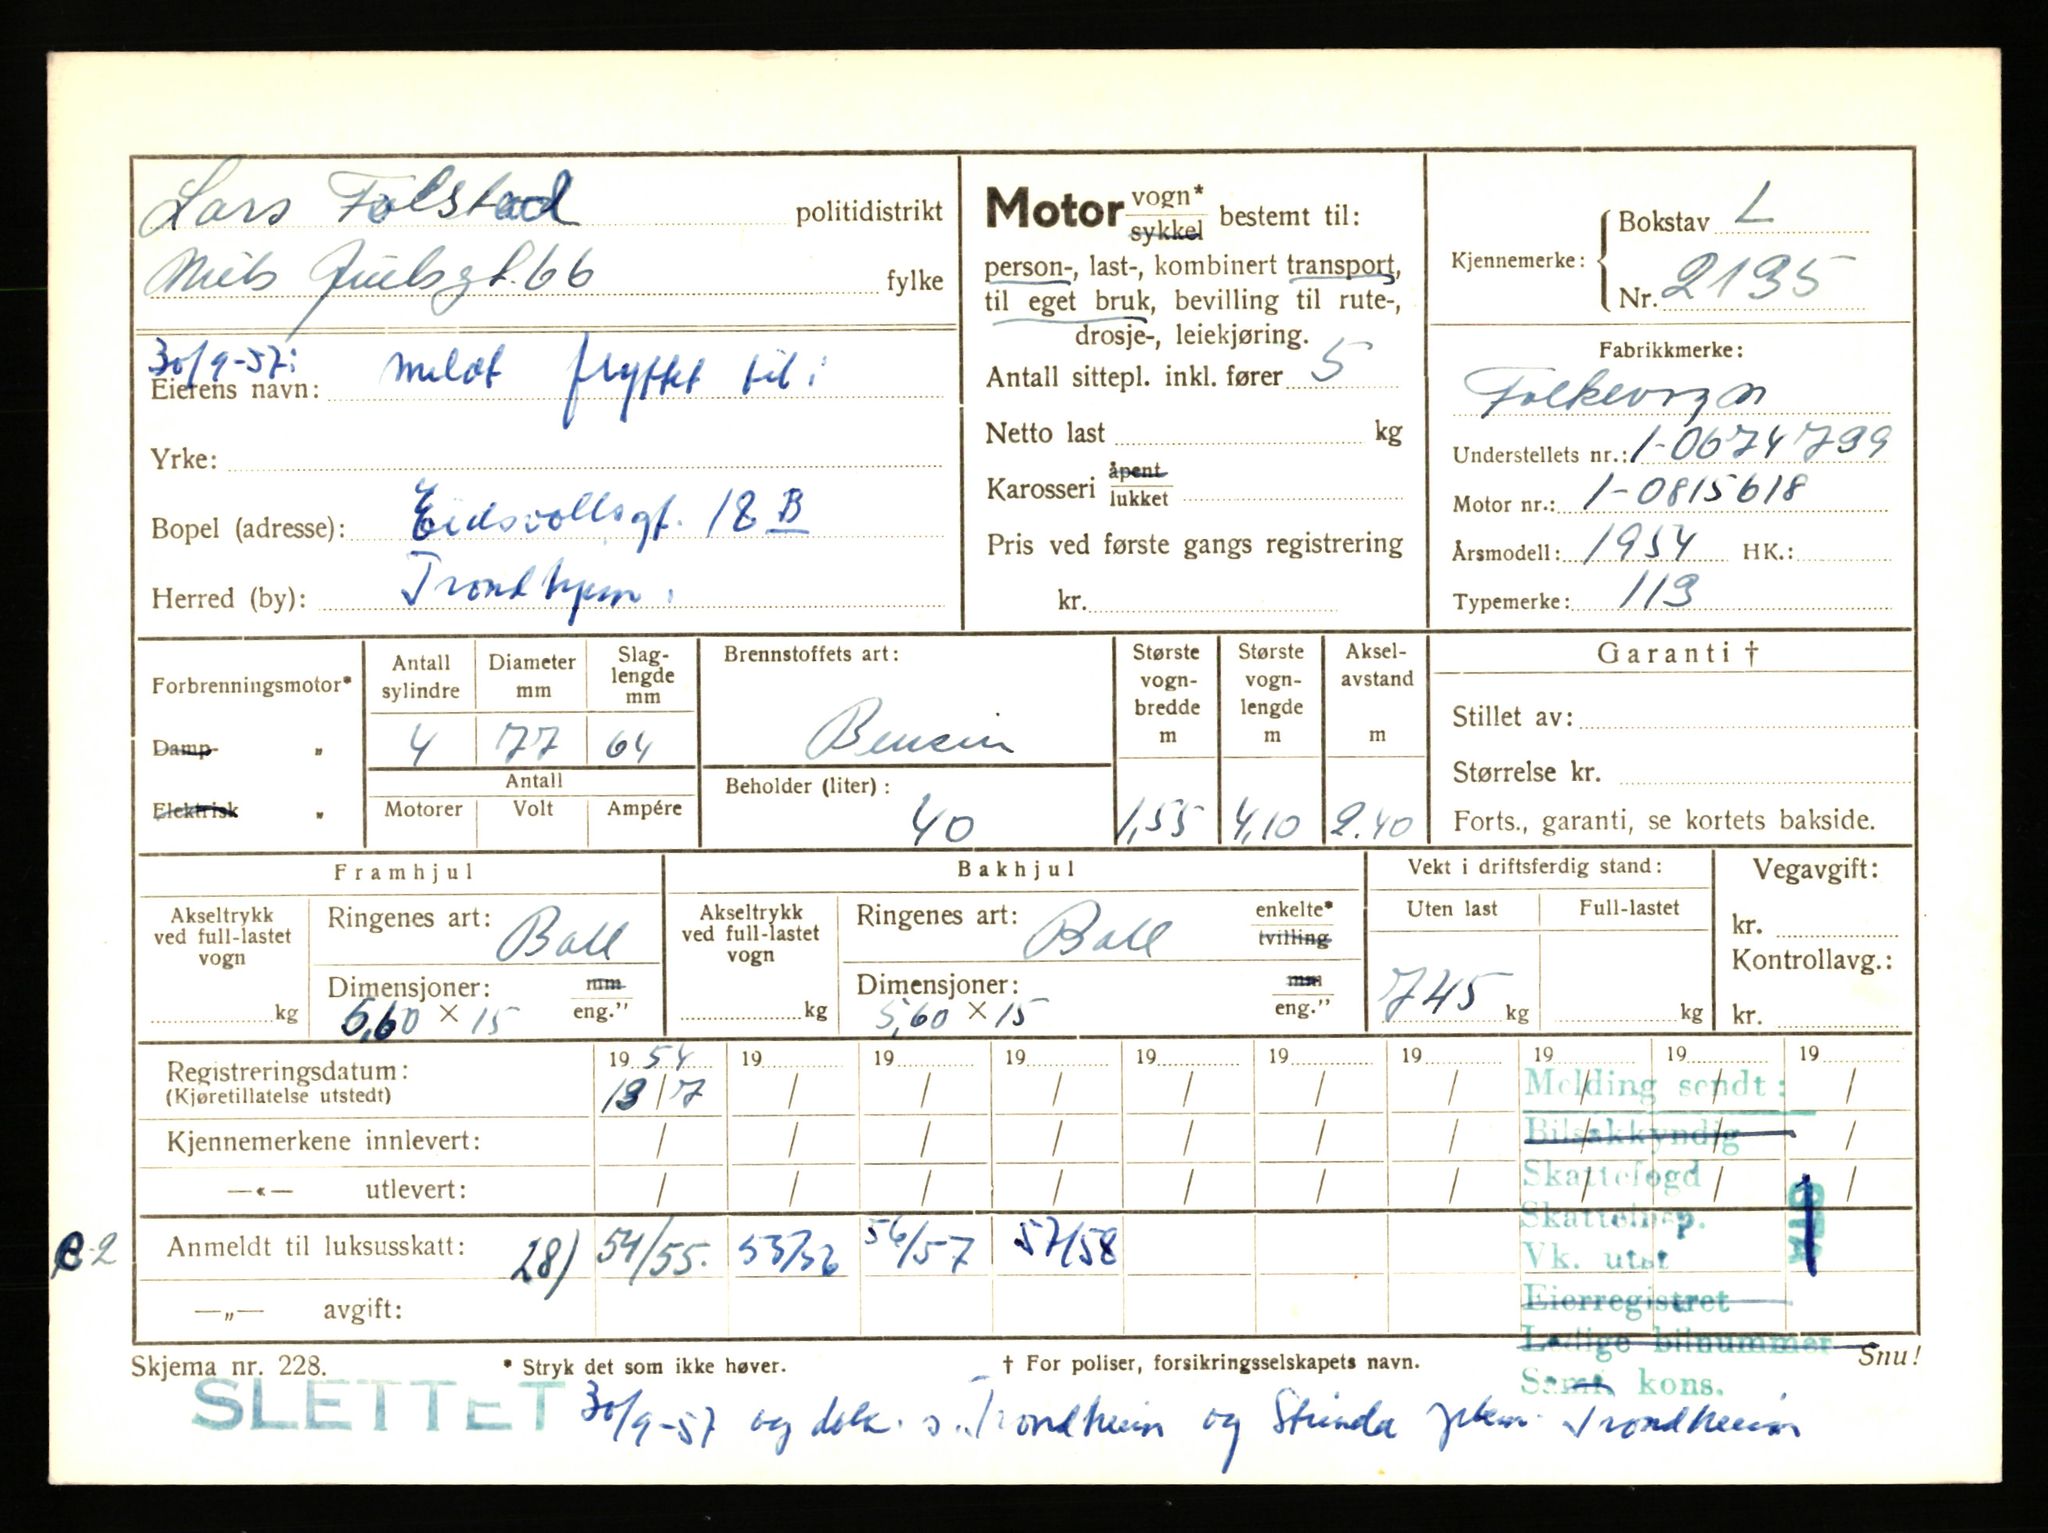 Lars Folstad politidistrikt
Niels Juelsgt. 66 fylke
30/9-57: meldt flyttet til:
Eierens navn:
Yrke:
Bopel (adresse): Eidsvollsgt. 18 B
Herred (by): Trondhjem.
Motor vogn* sykkel bestemt til:
person-, last-, kombinert transport,
til eget bruk, bevilling til rute-,
drosje-, leiekjøring.
Antall sittepl. inkl. fører 5
Netto last kg
Karosseri åpent lukket
Pris ved første gangs registrering
kr.
Kjennemerke: Bokstav L
Nr. 2135
Fabrikkmerke:
Folkevogn
Understellets nr.: 1-0674799
Motor nr.: 1-0815618
Årsmodell: 1954 HK.:
Typemerke: 113
Forbrenningsmotor*
Damp- „
Elektrisk „
Antall sylindre
Diameter mm
Slag-lengde mm
4 77 64
Antall
Motorer Volt Ampére
Brennstoffets art:
Bensin
Beholder (liter):
40
Største vogn-bredde m
1,55
Største vogn-lengde m
4,10
Aksel-avstand m
2.40
Garanti †
Stillet av:
Størrelse kr.
Forts., garanti, se kortets bakside.
Framhjul
Akseltrykk ved full-lastet vogn
kg
Ringenes art: Ball
Dimensjoner: mm
5,60 × 15 eng."
Bakhjul
Akseltrykk ved full-lastet vogn
kg
Ringenes art: Ball enkelte* tvilling
Dimensjoner: mm
5,60 × 15 eng."
Vekt i driftsferdig stand:
Uten last Full-lastet
745 kg kg
Vegavgift:
kr.
Kontrollavg.:
kr.
Registreringsdatum: 19 54 19 19 19 19 19 19 19 19 19
(Kjøretillatelse utstedt) 13/7 / / / / / / / / /
Kjennemerkene innlevert: / / / / / / / / / /
—«— utlevert: / / / / / / / / / /
C-2 Anmeldt til luksusskatt: 28) 54/55. 55/56 56/57 57/58
—„— avgift:
Melding sendt:
Bilsakkyndig
Skattefogd
Skatteinsp.
Vk. utst
Eierregistret
Ledige bilnummer
Samt. kons.
Skjema nr. 228. * Stryk det som ikke høver. † For poliser, forsikringsselskapets navn. Snu!
SLETTET 30/9-57 og dok. s. Trondheim og Strinda Trondheim